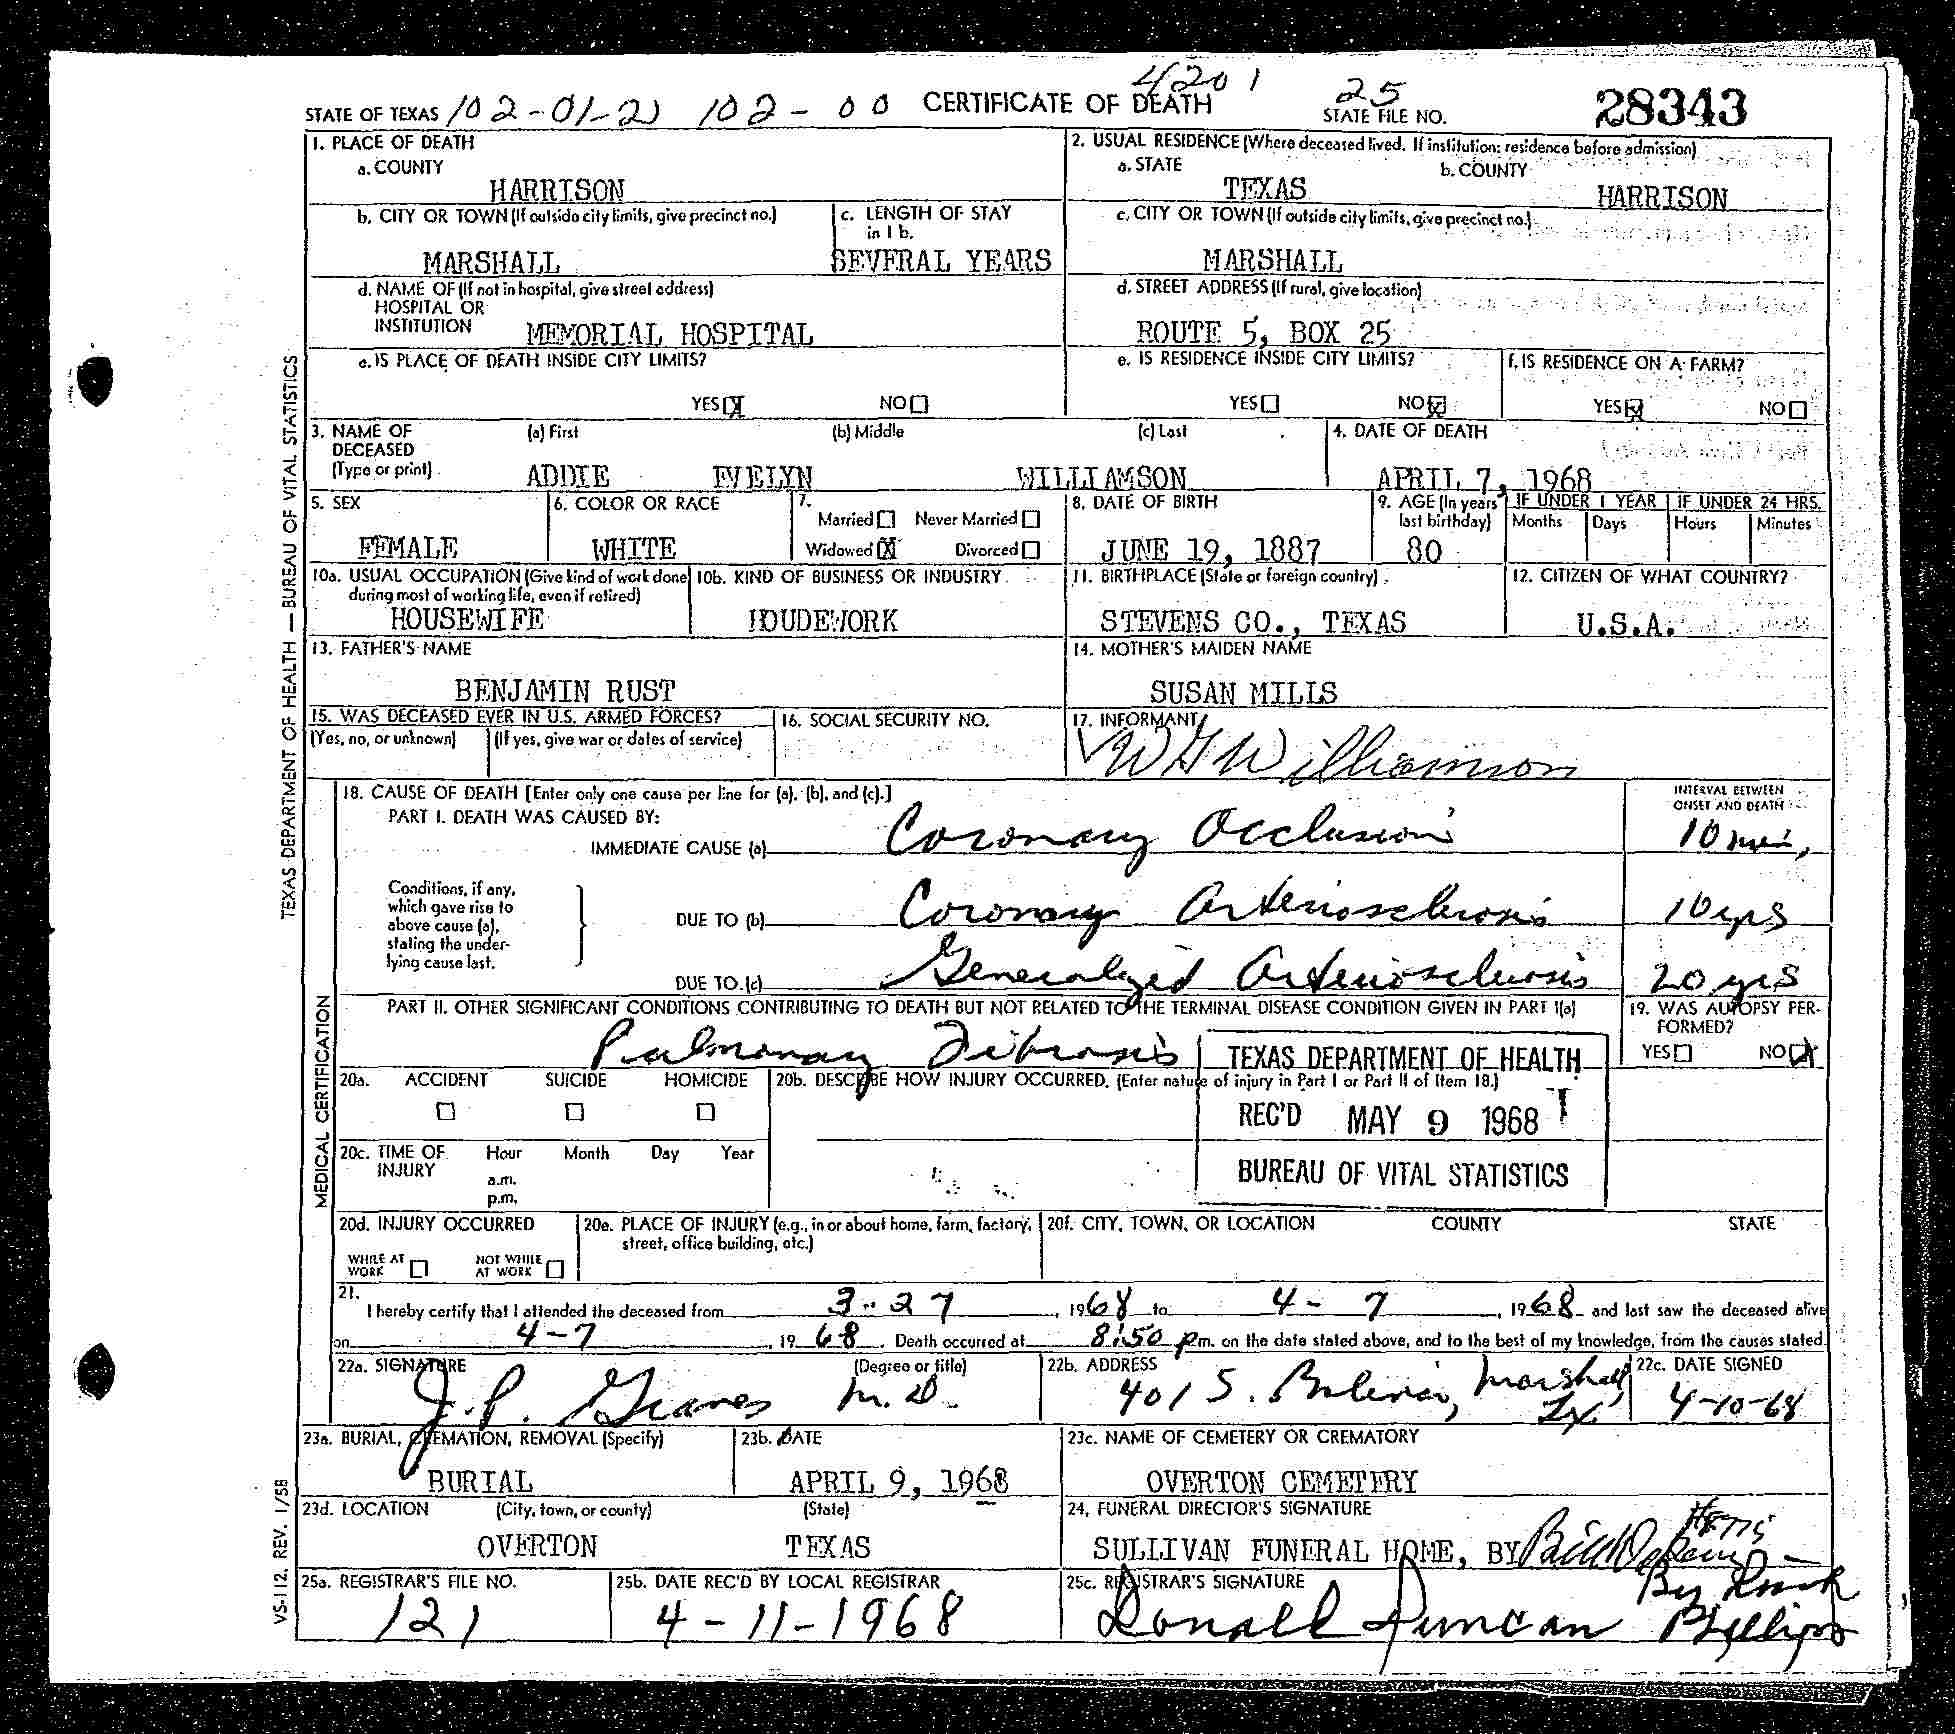 4201
STATE OF TEXAS 102-01-2 102-00 CERTIFICATE OF DEATH 25 STATE FILE NO. 28343
1. PLACE OF DEATH
a. COUNTY
HARRISON
2. USUAL RESIDENCE (Where deceased lived. If institution: residence before admission)
a. STATE
TEXAS
b. COUNTY
HARRISON
b. CITY OR TOWN (If outside city limits, give precinct no.)
MARSHALL
c. LENGTH OF STAY
in 1 b.
SEVERAL YEARS
c. CITY OR TOWN (If outside city limits, give precinct no.)
MARSHALL
d. NAME OF (If not in hospital, give street address)
HOSPITAL OR
INSTITUTION MEMORIAL HOSPITAL
d. STREET ADDRESS (If rural, give location)
ROUTE 5, BOX 25
e. IS PLACE OF DEATH INSIDE CITY LIMITS?
YES X NO
e. IS RESIDENCE INSIDE CITY LIMITS?
YES NO X
f. IS RESIDENCE ON A FARM?
YES X NO
3. NAME OF
DECEASED
(Type or print)
(a) First (b) Middle (c) Last
ADDIE EVELYN WILLIAMSON
4. DATE OF DEATH
APRIL 7, 1968
5. SEX
FEMALE
6. COLOR OR RACE
WHITE
7.
Married Never Married
Widowed X Divorced
8. DATE OF BIRTH
JUNE 19, 1887
9. AGE (In years
last birthday)
80
IF UNDER 1 YEAR IF UNDER 24 HRS.
Months Days Hours Minutes
10a. USUAL OCCUPATION (Give kind of work done
during most of working life, even if retired)
HOUSEWIFE
10b. KIND OF BUSINESS OR INDUSTRY
IOUDEWORK
11. BIRTHPLACE (State or foreign country)
STEVENS CO., TEXAS
12. CITIZEN OF WHAT COUNTRY?
U.S.A.
13. FATHER'S NAME
BENJAMIN RUST
14. MOTHER'S MAIDEN NAME
SUSAN MILLS
15. WAS DECEASED EVER IN U.S. ARMED FORCES?
(Yes, no, or unknown) (If yes, give war or dates of service)
16. SOCIAL SECURITY NO.
17. INFORMANT
W G Williamson
18. CAUSE OF DEATH [Enter only one cause per line for (a), (b), and (c).]
INTERVAL BETWEEN
ONSET AND DEATH
PART I. DEATH WAS CAUSED BY:
IMMEDIATE CAUSE (a) Coronary Occlusion 10 min,
Conditions, if any,
which gave rise to
above cause (a),
stating the under-
lying cause last.
DUE TO (b) Coronary Arteriosclerosis 10 yrs
DUE TO (c) Generalyzed Arteriosclerosis 20 yrs
PART II. OTHER SIGNIFICANT CONDITIONS CONTRIBUTING TO DEATH BUT NOT RELATED TO THE TERMINAL DISEASE CONDITION GIVEN IN PART I(a)
Pulmonary Fibrosis
19. WAS AUTOPSY PER-
FORMED?
YES NO X
TEXAS DEPARTMENT OF HEALTH
REC'D MAY 9 1968
BUREAU OF VITAL STATISTICS
20a. ACCIDENT SUICIDE HOMICIDE
20b. DESCRIBE HOW INJURY OCCURRED. (Enter nature of injury in Part I or Part II of Item 18.)
20c. TIME OF
INJURY
Hour Month Day Year
a.m.
p.m.
20d. INJURY OCCURRED
WHILE AT
WORK
NOT WHILE
AT WORK
20e. PLACE OF INJURY (e.g., in or about home, farm, factory,
street, office building, etc.)
20f. CITY, TOWN, OR LOCATION COUNTY STATE
21.
I hereby certify that I attended the deceased from 3-27, 1968 to 4-7, 1968 and last saw the deceased alive
on 4-7, 1968. Death occurred at 8:50 pm. on the date stated above, and to the best of my knowledge, from the causes stated.
22a. SIGNATURE (Degree or title)
J.P. Graves M.D.
22b. ADDRESS
401 S. Bolivar, Marshall
Tx
22c. DATE SIGNED
4-10-68
23a. BURIAL, CREMATION, REMOVAL (Specify)
BURIAL
23b. DATE
APRIL 9, 1968
23c. NAME OF CEMETERY OR CREMATORY
OVERTON CEMETERY
23d. LOCATION (City, town, or county) (State)
OVERTON TEXAS
24. FUNERAL DIRECTOR'S SIGNATURE
SULLIVAN FUNERAL HOME, BY Bill
25a. REGISTRAR'S FILE NO.
121
25b. DATE REC'D BY LOCAL REGISTRAR
4-11-1968
25c. REGISTRAR'S SIGNATURE
Donald Duncan By Phillips
TEXAS DEPARTMENT OF HEALTH — BUREAU OF VITAL STATISTICS
MEDICAL CERTIFICATION
VS-112, REV. 1/58